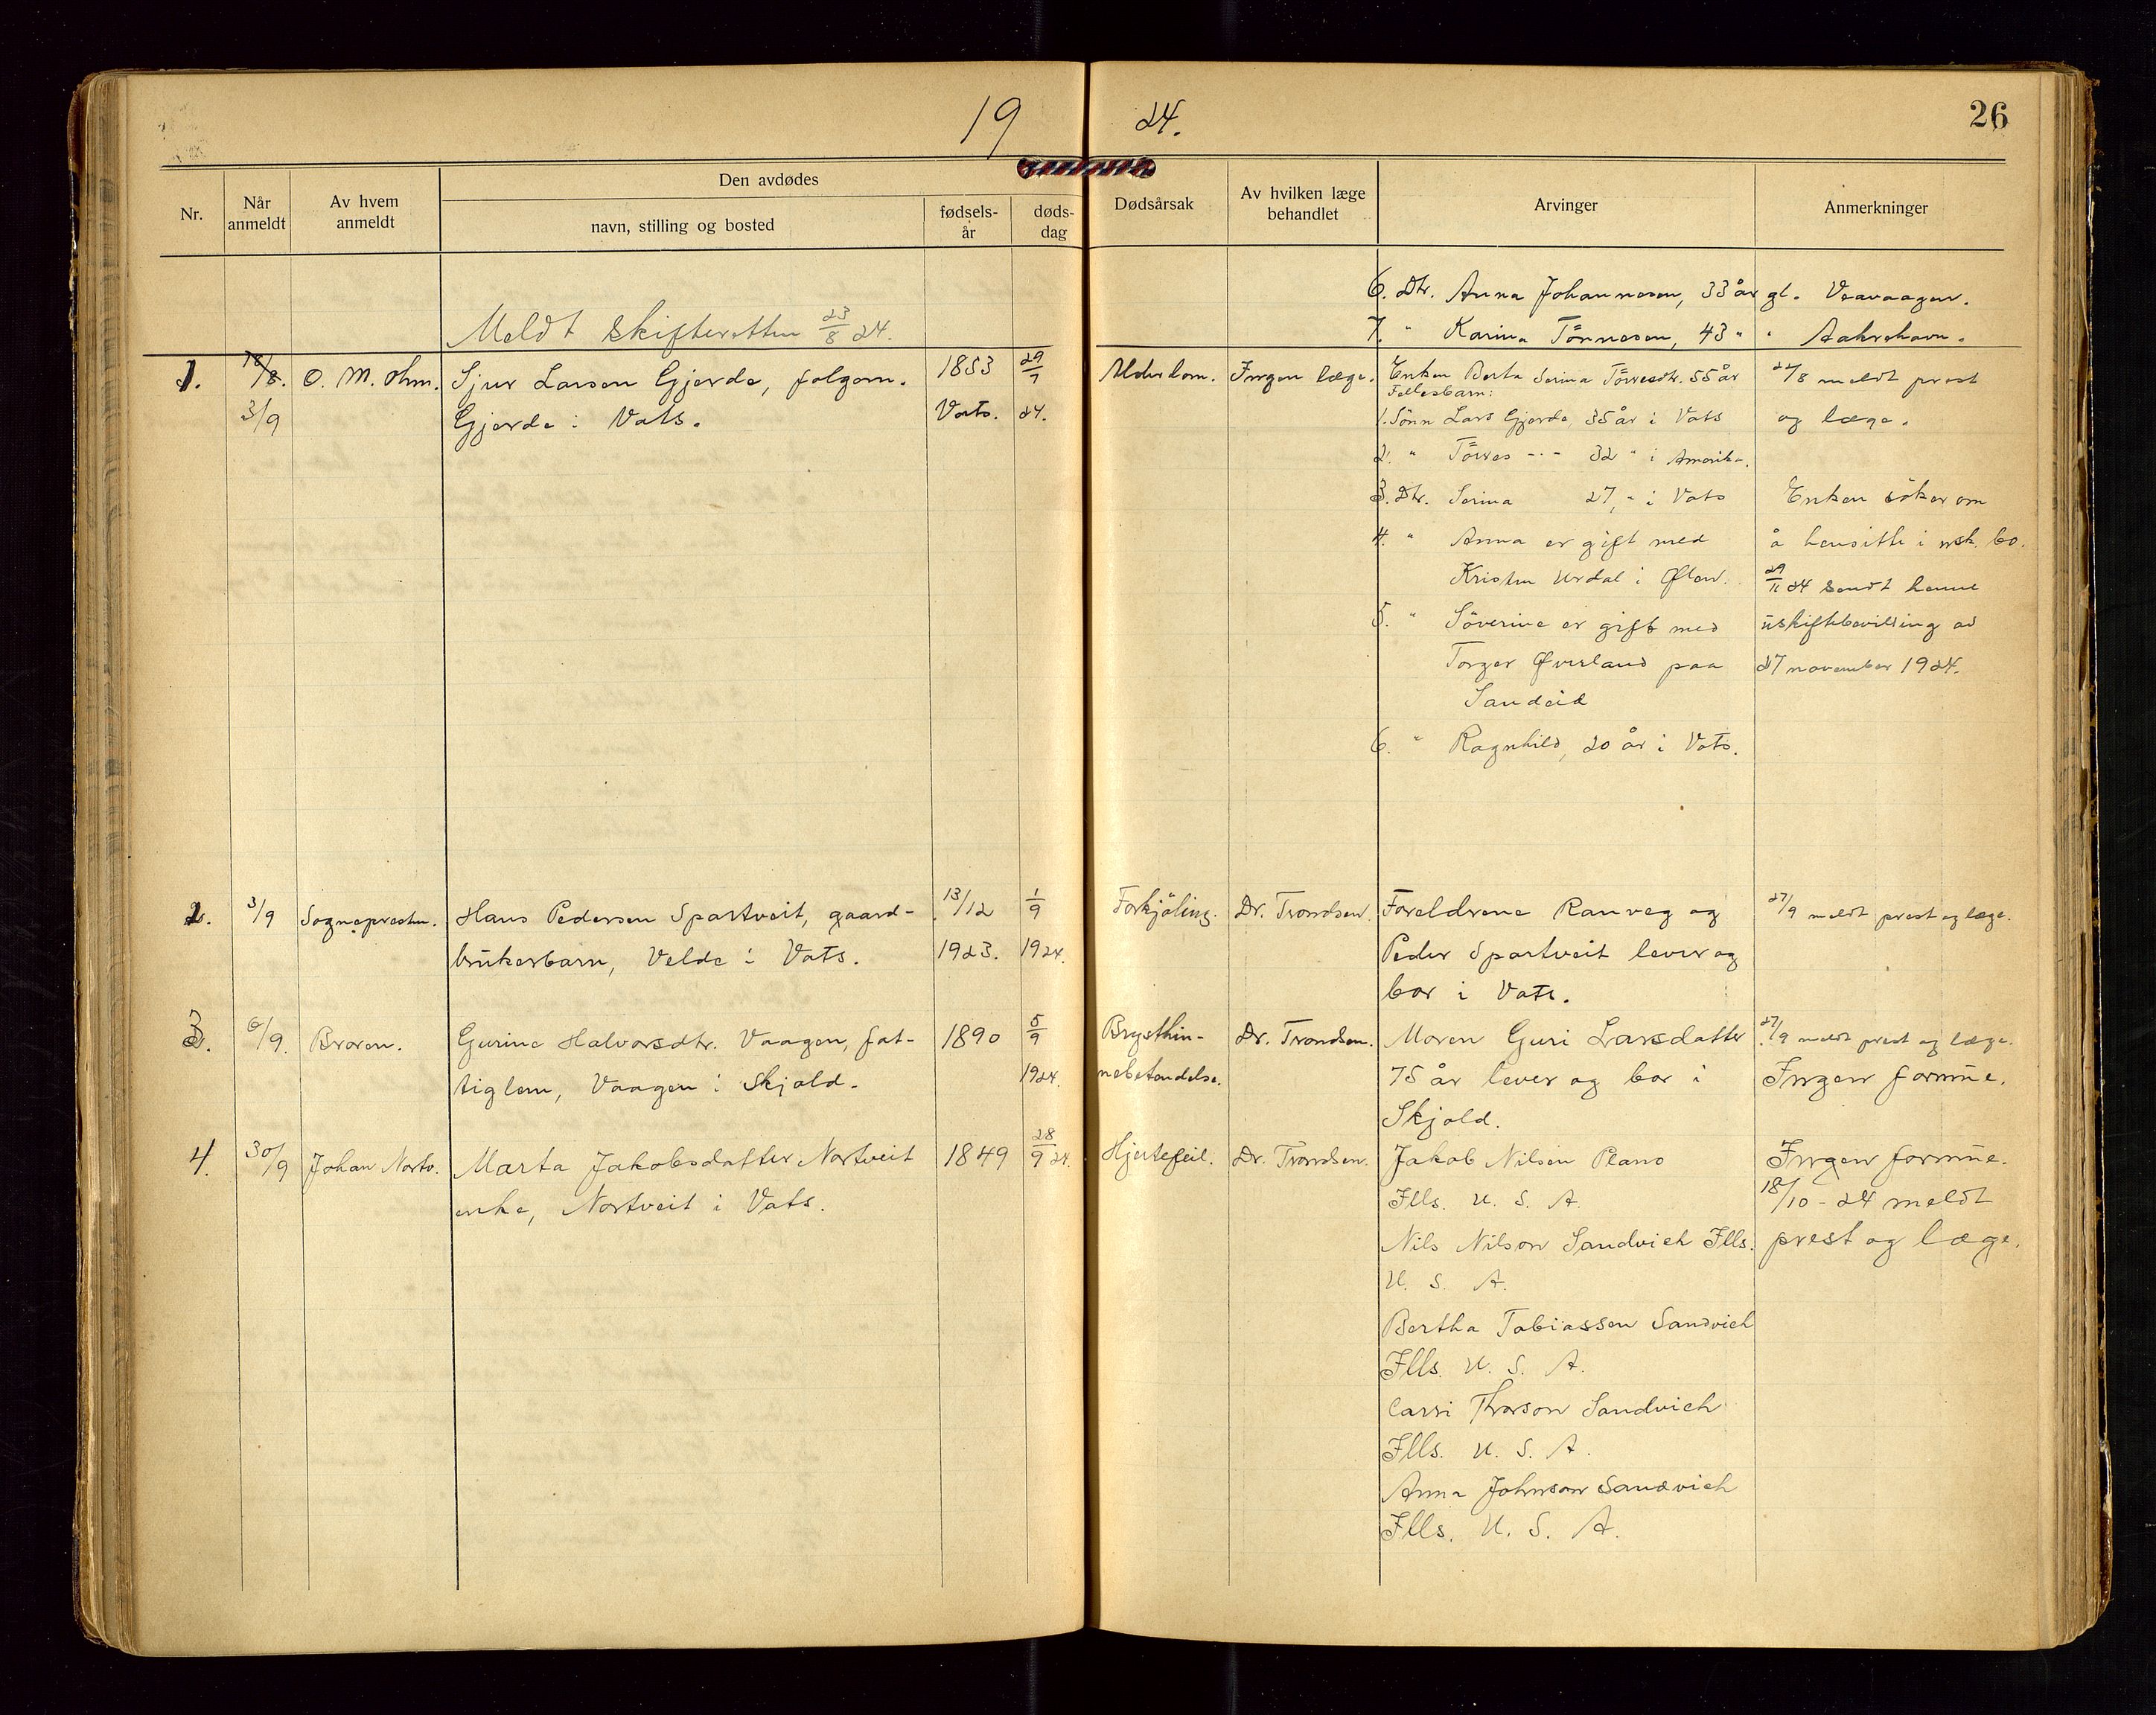 19 24.
26
Nr.
Når anmeldt
Av hvem anmeldt
Den avdødes
navn, stilling og bosted
fødsels- år
døds- dag
Dødsårsak
Av hvilken læge behandlet
Arvinger
Anmerkninger
6. Dtr. Anna Johannesen, 33 år gl. Veavaagen.
7. " Karina Tönnesen, 43 " " Aakrehavn.
Meldt skifteretten 23/8 24.
1. 18/8. O. M. Ohm. Sjur Larsen Gjerde, folgem. 1853 29/7 Alderdom. Ingen læge. Enken Berta Serina Törresdtr. 55 år 27/8 meldt prest
Fellesbarn:
3/9 Gjerde i Vats. Vats. 24. 1. Sönn Lars Gjerde, 35 år i Vats og læge.
2. " Törres -"- 32 " i Amerika.
3. Dtr. Serina 27, " i Vats Enken söker om
4. " Anna er gift med å hensitte i usk. bo.
Kristen Urdal i Ølen. 29/11 24 sendt henne
5. " Söverine er gift med uskiftebevilling av
Torger Øverland paa 27 november 1924.
Sandeid
6. " Ragnhild, 20 år i Vats.
2. 3/9 Sognepresten. Hans Pedersen Spartveit, gaard- 13/12 1/9 Forkjöling. Dr. Trondsen. Foreldrene Ranveg og 27/9 meldt prest og læge.
brukerbarn, Velde i Vats. 1923. 1924. Peder Spartveit lever og
bor i Vats.
3. 6/9. Broren. Gurine Halvorsdtr. Vaagen, fat- 1890 5/9 Brysthin- Dr. Trondsen. Moren Guri Larsdatter 27/9 meldt prest og læge.
tiglem, Vaagen i Skjold. 1924. nebetendelse. 75 år lever og bor i Ingen formue.
Skjold.
4. 30/9 Johan Nortv. Marta Jakobsdatter Nortveit 1849 28/9 24. Hjertefeil. Dr. Trondsen. Jakob Nilsen Plano Ingen formue.
enke, Nortveit i Vats. Ills. U. S. A. 18/10 - 24 meldt
Nils Nilson Sandvich Ills. prest og læge.
U. S. A.
Bertha Tobiassen Sandvich
Ills. U. S. A.
Carri Thorson Sandvich
Ills. U. S. A.
Anna Johnson Sandvich
Ills. U. S. A.